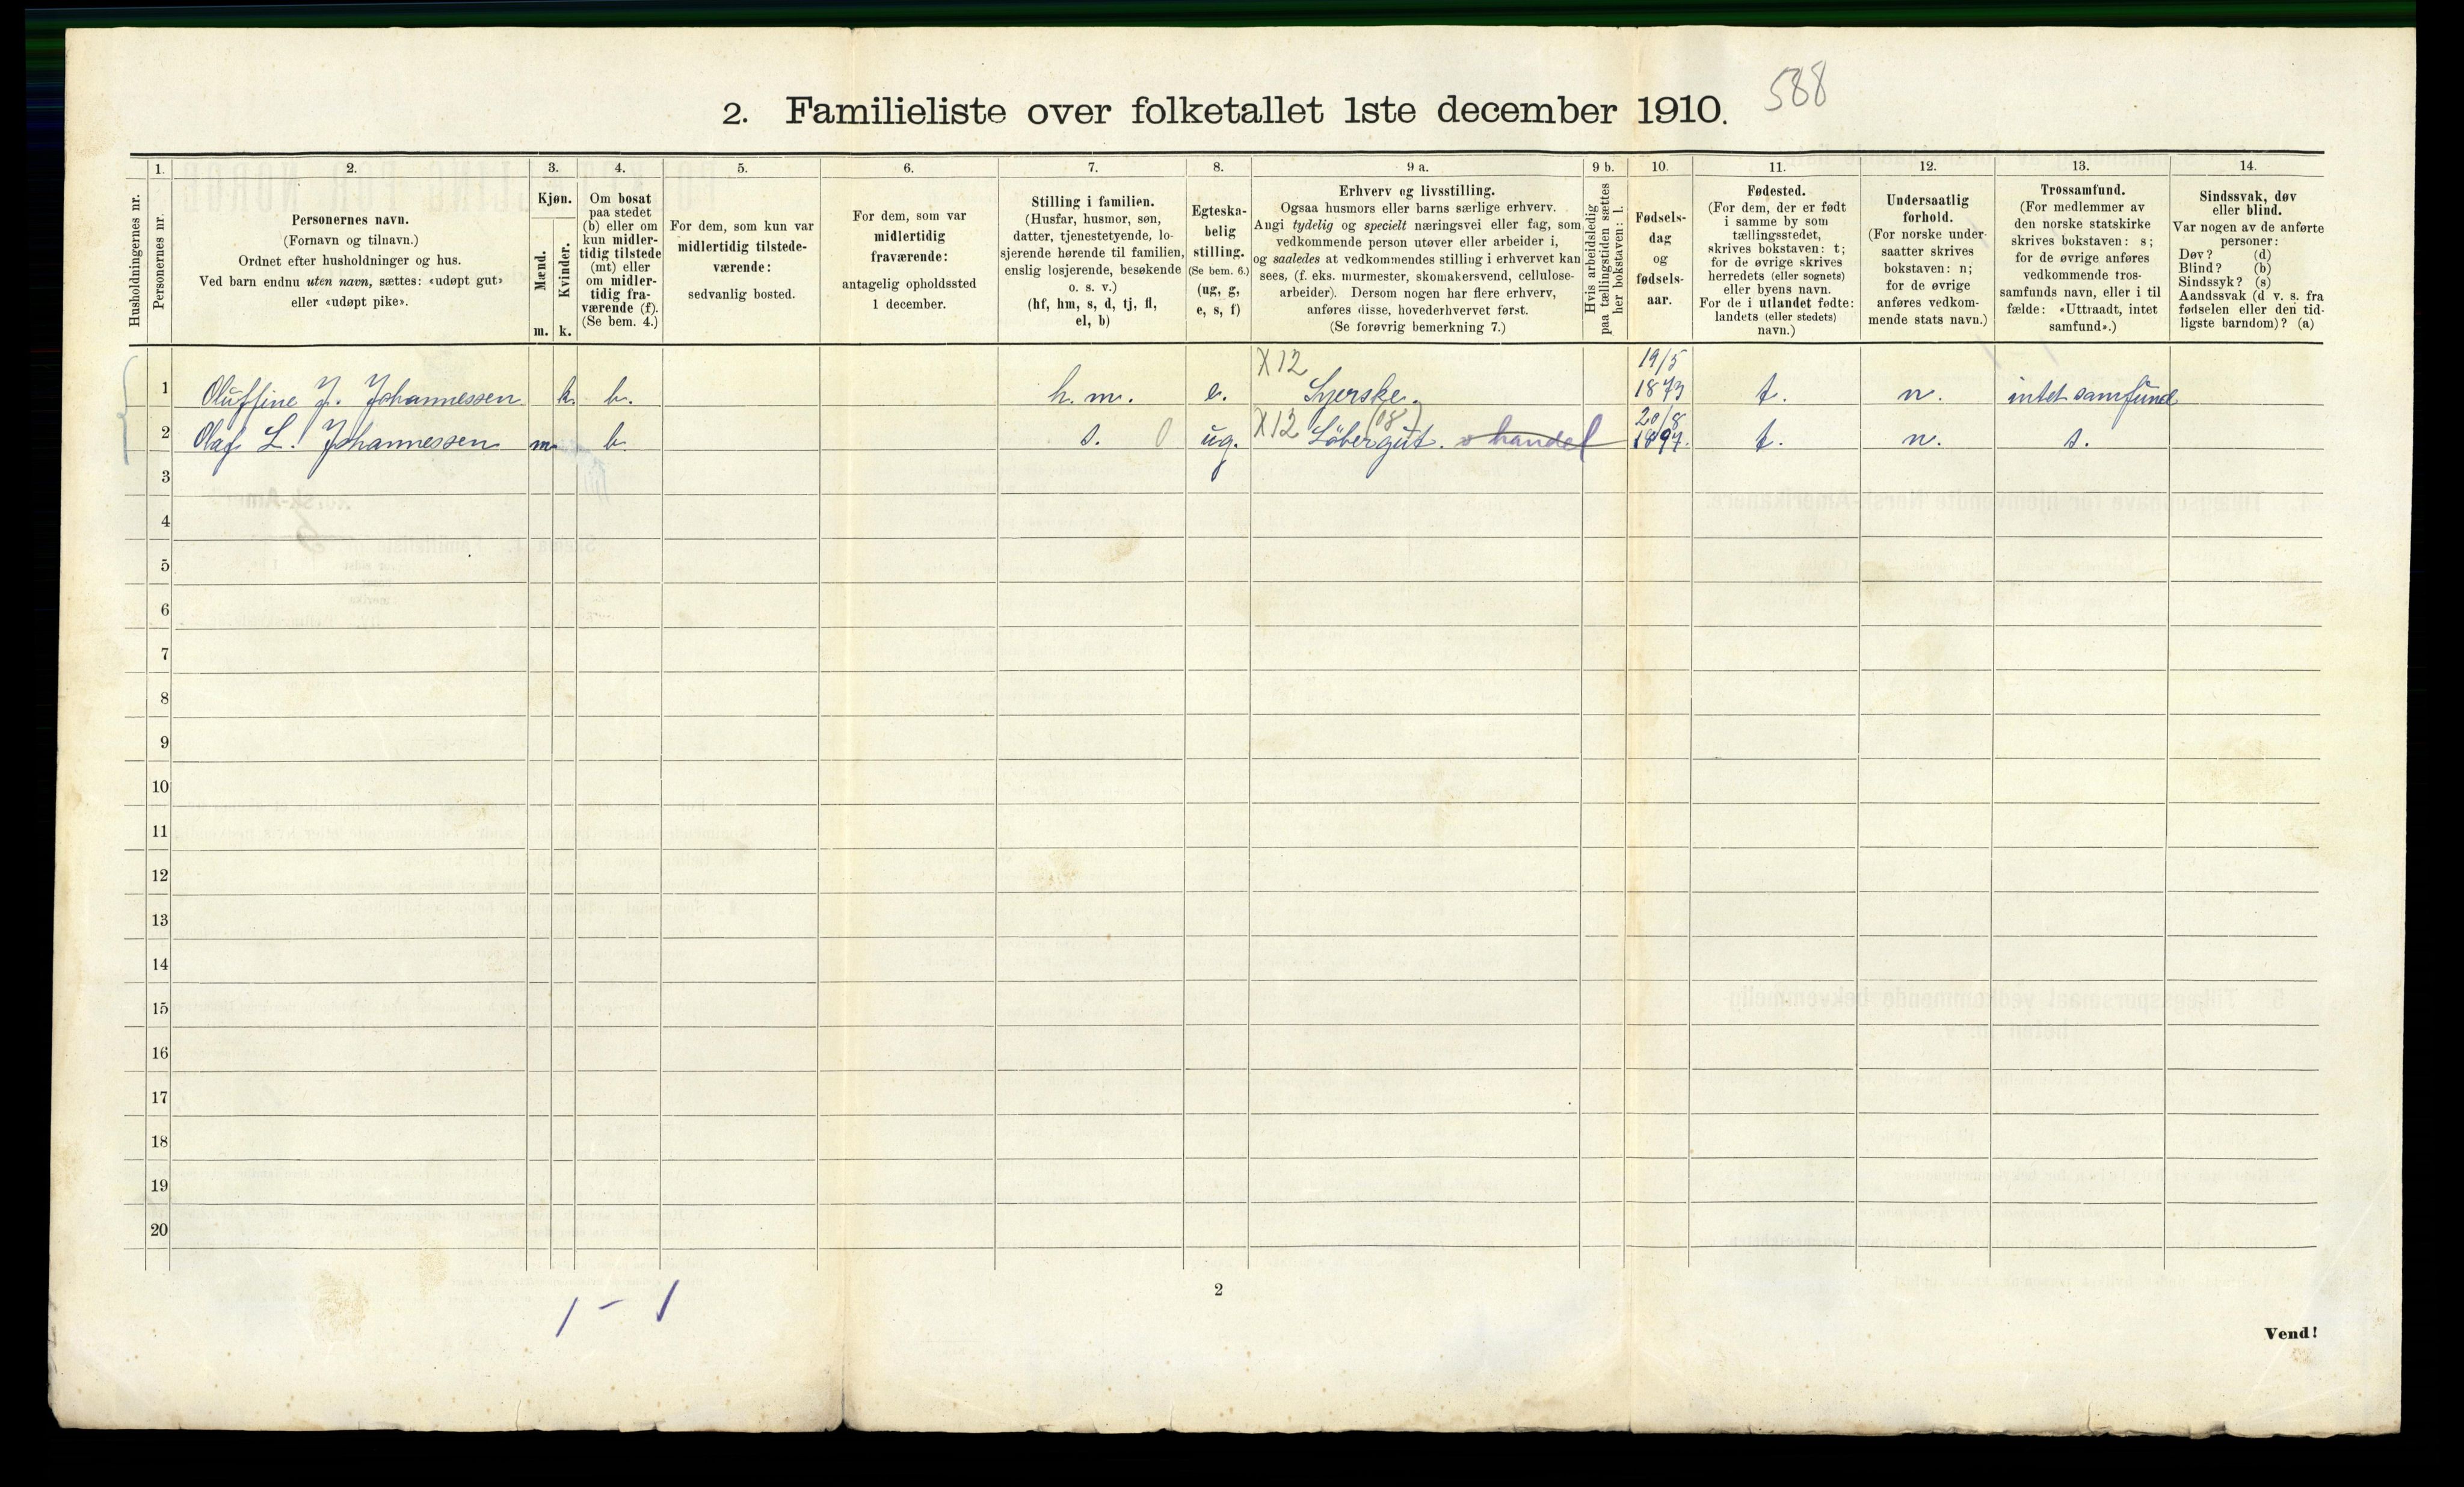 588
2. Familieliste over folketallet 1ste december 1910.
Husholdningernes nr.
1.
Personernes nr.
2.
Personernes navn.
(Fornavn og tilnavn.)
Ordnet efter husholdninger og hus.
Ved barn endnu uten navn, sættes: «udøpt gut»
eller «udøpt pike».
3.
Kjøn.
Mænd.
m.
Kvinder.
k.
4.
Om bosat
paa stedet
(b) eller om
kun midler-
tidig tilstede
(mt) eller
om midler-
tidig fra-
værende (f).
(Se bem. 4.)
5.
For dem, som kun var
midlertidig tilstede-
værende:
sedvanlig bosted.
6.
For dem, som var
midlertidig
fraværende:
antagelig opholdssted
1 december.
7.
Stilling i familien.
(Husfar, husmor, søn,
datter, tjenestetyende, lo-
sjerende hørende til familien,
enslig losjerende, besøkende
o. s. v.)
(hf, hm, s, d, tj, fl,
el, b)
8.
Egteska-
belig
stilling.
(Se bem. 6.)
(ug, g,
e, s, f)
9 a.
Erhverv og livsstilling.
Ogsaa husmors eller barns særlige erhverv.
Angi tydelig og specielt næringsvei eller fag, som
vedkommende person utøver eller arbeider i,
og saaledes at vedkommendes stilling i erhvervet kan
sees, (f. eks. murmester, skomakersvend, cellulose-
arbeider). Dersom nogen har flere erhverv,
anføres disse, hovederhvervet først.
(Se forøvrig bemerkning 7.)
9 b.
Hvis arbeidsledig
paa tællingstiden sættes
her bokstaven: l.
10.
Fødsels-
dag
og
fødsels-
aar.
11.
Fødested.
(For dem, der er født
i samme by som
tællingsstedet,
skrives bokstaven: t;
for de øvrige skrives
herredets (eller sognets)
eller byens navn.
For de i utlandet fødte:
landets (eller stedets)
navn.)
12.
Undersaatlig
forhold.
(For norske under-
saatter skrives
bokstaven: n;
for de øvrige
anføres vedkom-
mende stats navn.)
13.
Trossamfund.
(For medlemmer av
den norske statskirke
skrives bokstaven: s;
for de øvrige anføres
vedkommende tros-
samfunds navn, eller i til-
fælde: «Uttraadt, intet
samfund».)
14.
Sindssvak, døv
eller blind.
Var nogen av de anførte
personer:
Døv? (d)
Blind? (b)
Sindssyk? (s)
Aandssvak (d v. s. fra
fødselen eller den tid-
ligste barndom)? (a)
1 Oluffine J. Johannessen k. b. h. m. e. X12 Syerske. 19/5 1873 t. n. intet samfund
2 Olaf L. Johannessen m. b. s. 0 ug. X12 Löbergut. (18) handel 20/8 1897. t. n. s.
3
4
5
6
7
8
9
10
11
12
13
14
15
16
17
18
19
20
1 - 1
2
Vend!